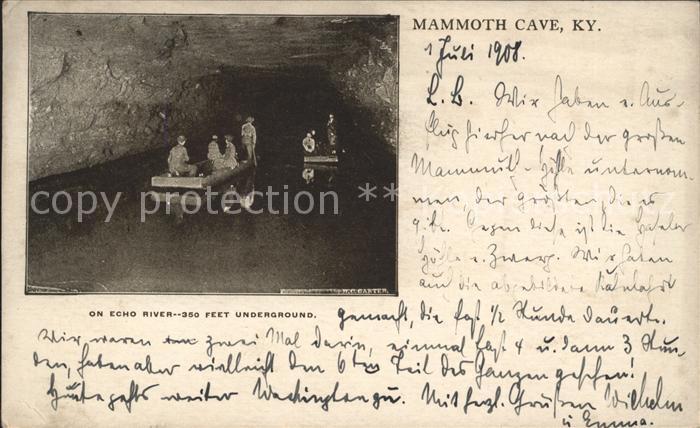 MAMMOTH CAVE, KY.
1 Juli 1908.
L. B. Wir haben e. Aus-
flug hierher nach der großen
Mammuth-Höhle unternom-
men, der größten, die es
gibt. Gegen diese ist die Haseler
Höhle e. Zwerg. Wir haben
auch die abgebildete Kahnfahrt
gemacht, die fast 1/2 Stunde dauerte.
Wir waren zwei Mal darin, einmal fast 4 u. dann 3 Stun-
den, haben aber vielleicht den 6ten Teil des Ganzen gesehen!
Heute gehts weiter Washington zu. Mit herzl. Grüßen Wilhelm
u Emma.
W.C. CARTER.
ON ECHO RIVER--350 FEET UNDERGROUND.
copy protection ** ansichtskarten-lexikon